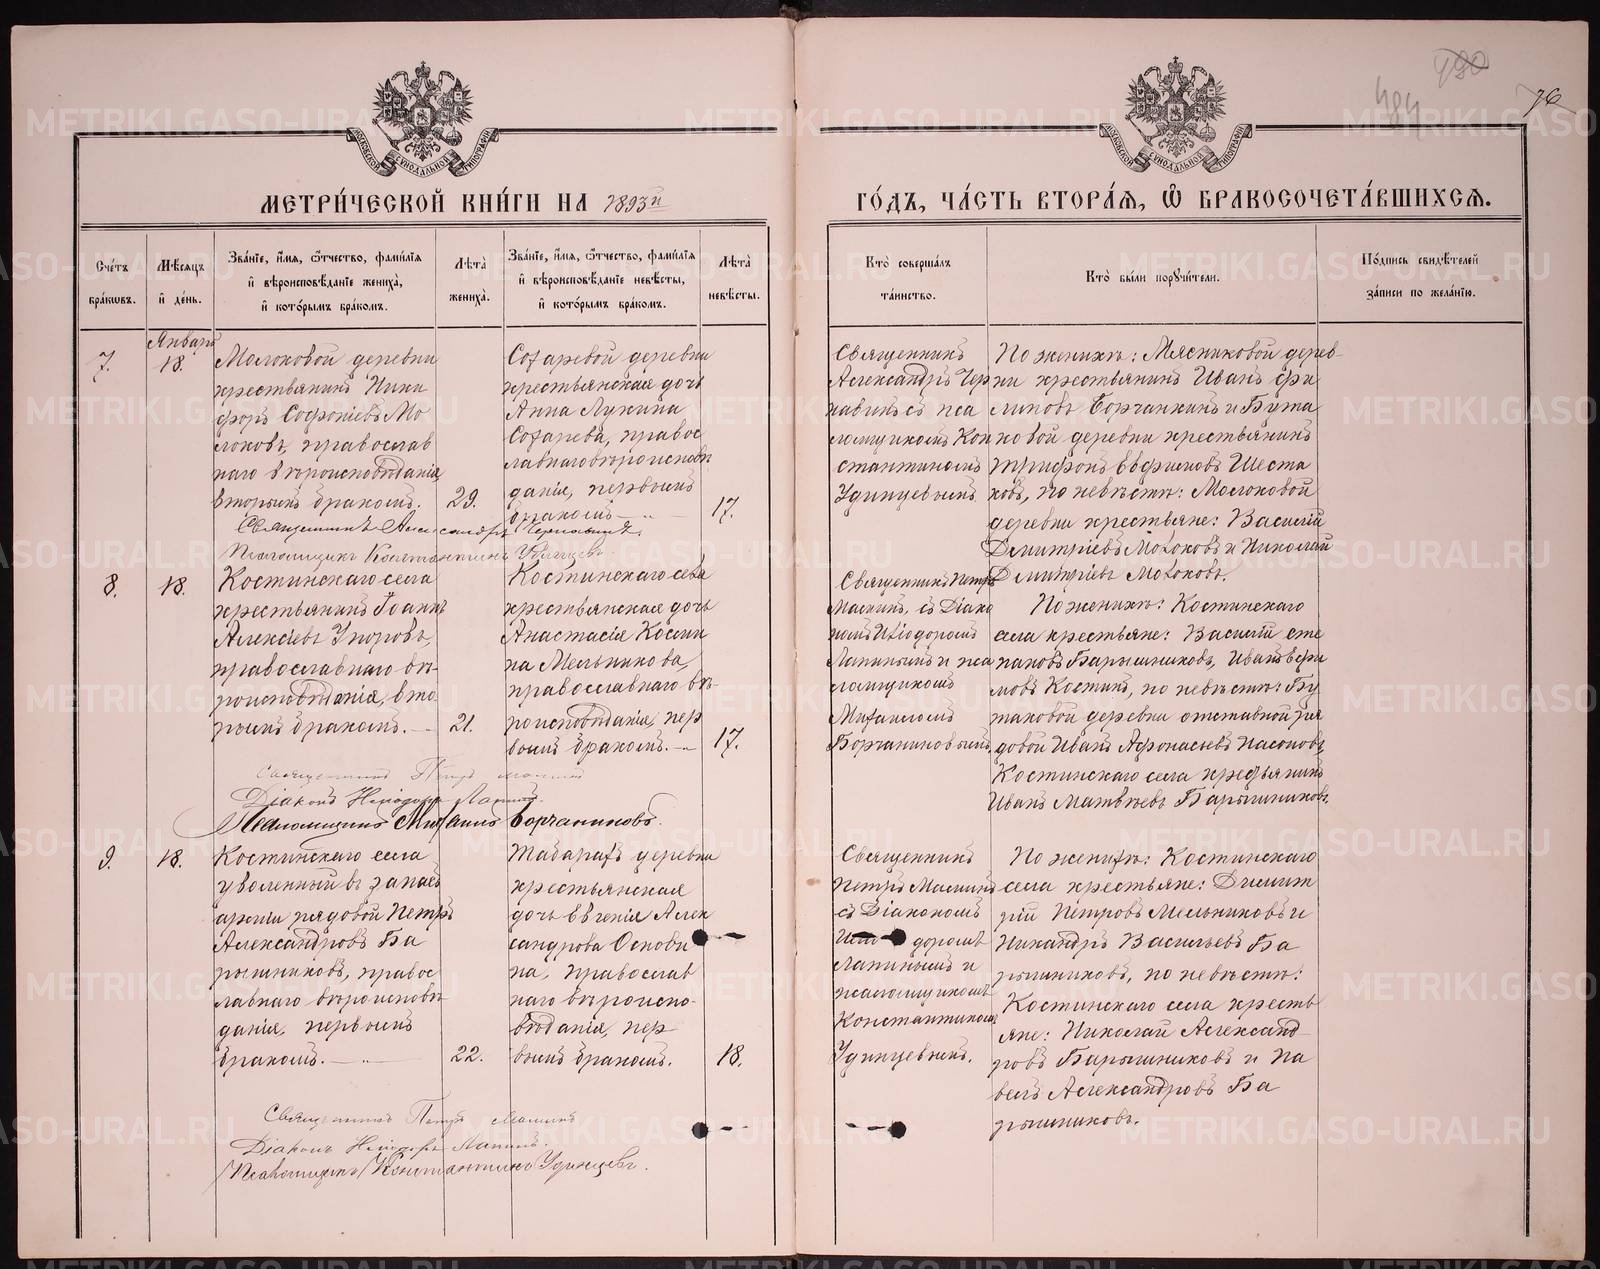 490
484
76
МОСКОВСКОЙ СѴНОДАЛЬНОЙ ТИПОГРАФІИ
МОСКОВСКОЙ СѴНОДАЛЬНОЙ ТИПОГРАФІИ
МЕТРИ́ЧЕСКОЙ КНИ́ГИ НА 1893й
ГО́ДЪ, ЧА́СТЬ ВТОРА́Я, Ѡ БРАКОСОЧЕТА́ВШИХСЯ.
Сче́тъ бра́кωвъ.
Мѣ́сяцъ и҆ де́нь.
Зва́нїе, и҆́мя, ѻ҆́тчество, фами́лїя
и҆ вѣроисповѣ́данїе жениха̀,
и҆ кото́рымъ бра́комъ.
Лѣ́та̀ жениха̀.
Зва́нїе, и҆́мя, ѻ҆́тчество, фами́лїя
и҆ вѣроисповѣ́данїе невѣ́сты,
и҆ кото́рымъ бра́комъ.
Лѣ́та̀ невѣ́сты.
Кто̀ соверша́лъ
та́инство.
Кто̀ бы́ли порꙋчи́тели.
По́дпись свидѣ́телей
за́писи по жела́нїю.
Январь
7.
18.
Молоковой деревни
крестьянинъ Ники
форъ Софонiевъ Мо
локовъ, православ
наго вѣроисповѣданія
вторымъ бракомъ.
29.
Сохаревой деревни
крестьянская дочь
Анна Лукина
Сохарева, правос
лавнаго вѣроисповѣ
данія, первымъ
бракомъ — „ —
17.
Священникъ
Александръ Чер
навинъ съ пса
ломщикомъ Кон
стантиномъ
Удинцевымъ
По женихѣ: Мясниковой дерев-
ни крестьянинъ Иванъ Фи
липовъ Борчанкинъ и Бута
ковой деревни крестьянинъ
Трифонъ Евфимовъ Шеста
ковъ, по невѣстѣ: Молоковой
деревни крестьяне: Василій
Дмитріевъ Молоковъ и Николай
Дмитріевъ Молоковъ.
Священникъ Александръ Чернавинъ.
Псаломщикъ Константинъ Удинцевъ.
8.
18.
Костинскаго села
крестьянинъ Іоаннъ
Алексіевъ Упоровъ,
православнаго вѣ-
роисповѣданія, вто-
рымъ бракомъ. —
21.
Костинскаго села
крестьянская дочь
Анастасія Косми
на Мельникова,
православнаго вѣ-
роисповѣданія, пер
вымъ бракомъ. — „
17.
Священникъ Петръ
Маминъ, съ Діако
номъ Иліодоромъ
Лапинымъ и пса
ломщикомъ
Михаиломъ
Борчаниновымъ
По женихѣ: Костинскаго
села крестьяне: Василій Сте
пановъ Барышниковъ, Иванъ Ефи
мовъ Костинъ, по невѣстѣ: Бу
таковой деревни отставной ря
довой Иванъ Афонасьевъ Насоновъ,
Костинскаго села крестьянинъ
Иванъ Матвѣевъ Барышниковъ.
Священникъ Петръ Маминъ
Діаконъ Иліодоръ Лапинъ.
Псаломщикъ Михаилъ Борчаниновъ.
9.
18.
Костинскаго села
уволенный въ запасъ
арміи рядовой Петръ
Александровъ Ба
рышниковъ, правос
лавнаго вѣроисповѣ
данія, первымъ
бракомъ. — „ —
22.
Табарахъ деревни
крестьянская
дочь Евгенія Алек
сандрова Основи
на, православ
наго вѣроиспо-
вѣданія, пер
вымъ бракомъ.
18.
Священникъ
Петръ Маминъ
съ Діакономъ
Иліодоромъ
Лапинымъ и
псаломщикомъ
Константиномъ
Удинцевымъ.
По женихѣ: Костинскаго
села крестьяне: Димит
рій Петровъ Мельниковъ и
Никандръ Васильевъ Ба
рышниковъ, по невѣстѣ:
Костинскаго села кресть
яне: Николай Александ
ровъ Барышниковъ и Па
велъ Александровъ Ба
рышниковъ.
Священникъ Петръ Маминъ
Діаконъ Иліодоръ Лапинъ.
Псаломщикъ Константинъ Удинцевъ.
METRIKI.GASO-URAL.RU